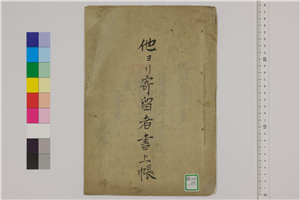 他ヨリ寄留者書上帳